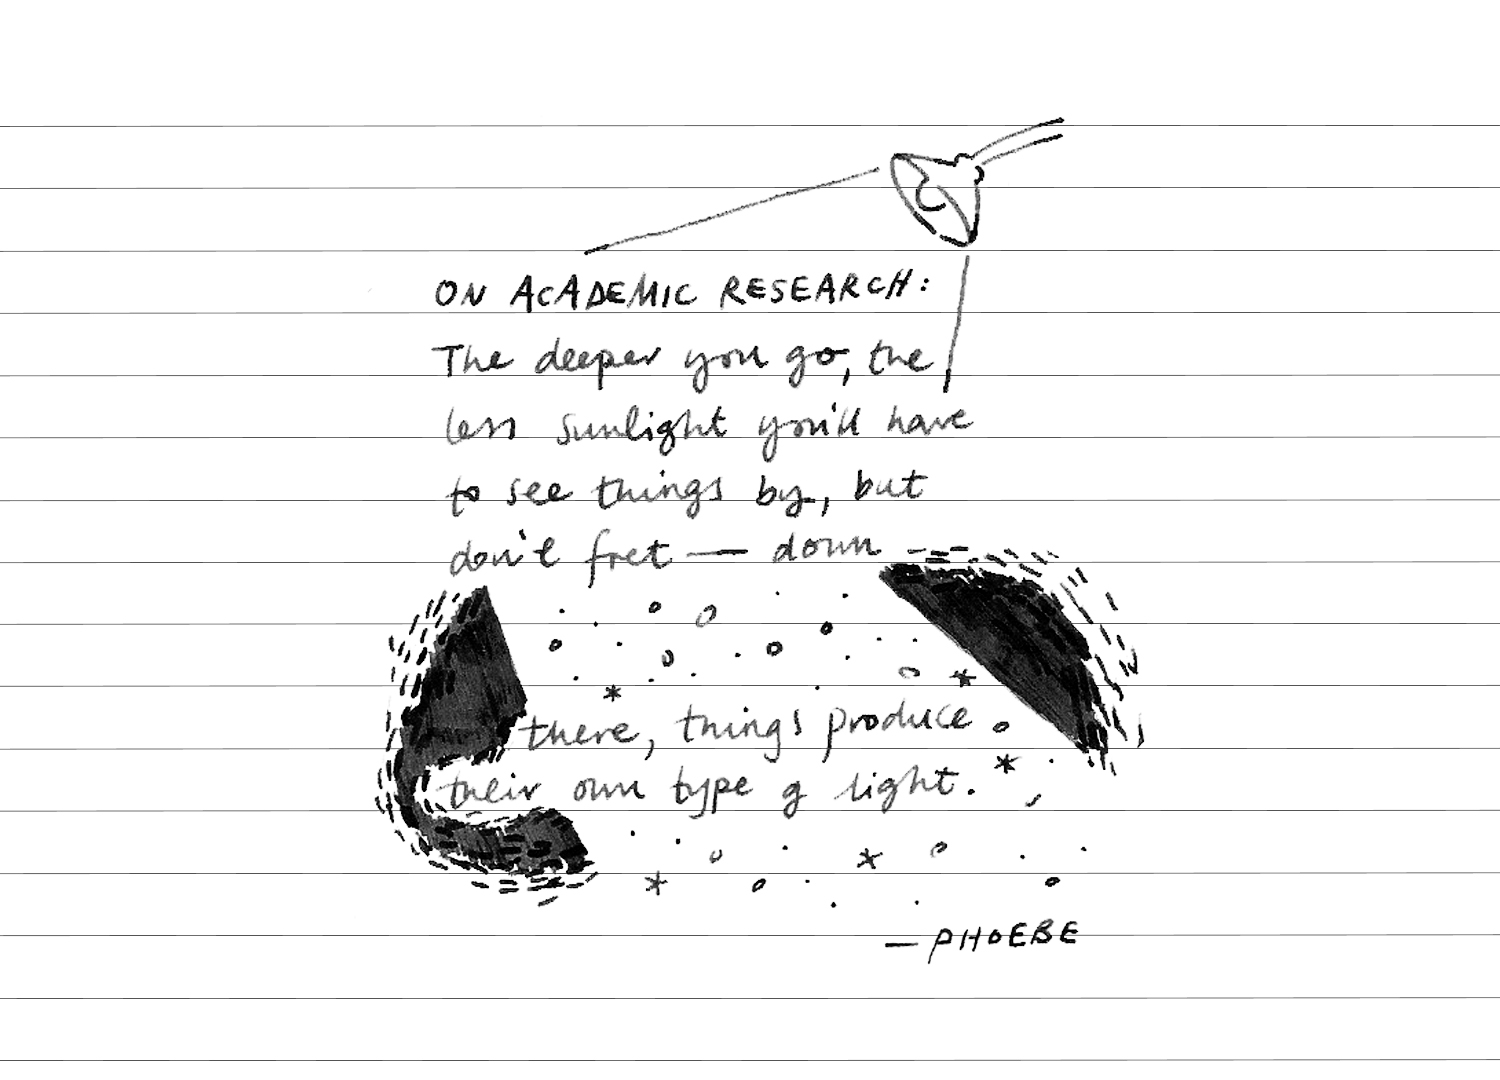 ON ACADEMIC RESEARCH:
The deeper you go, the
less sunlight you'll have
to see things by, but
don't fret — down
there, things produce
their own type of light.
— PHOEBE